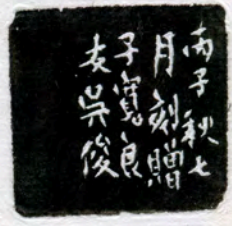 丙子秋七
月刻贈
子寬良
友吳俊